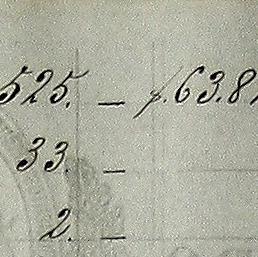 525. _ f. 63.8
33. _
2. _